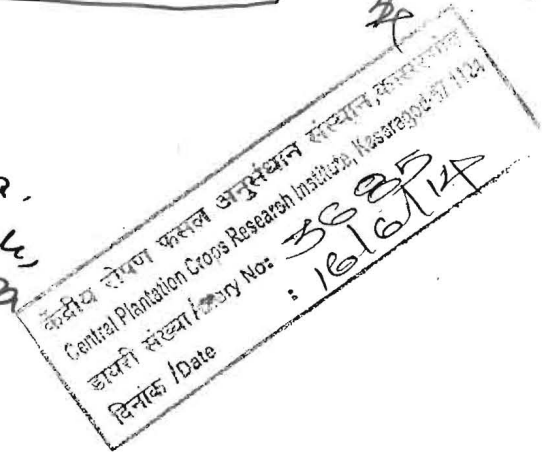 केंद्रीय रोपण फसल अनुसंधान संस्थान, कासरगोड
Central Plantation Crops Research Institute, Kasaragod-67 1124
डायरी संख्या /Diary No: 3685
दिनांक /Date : 16/6/14